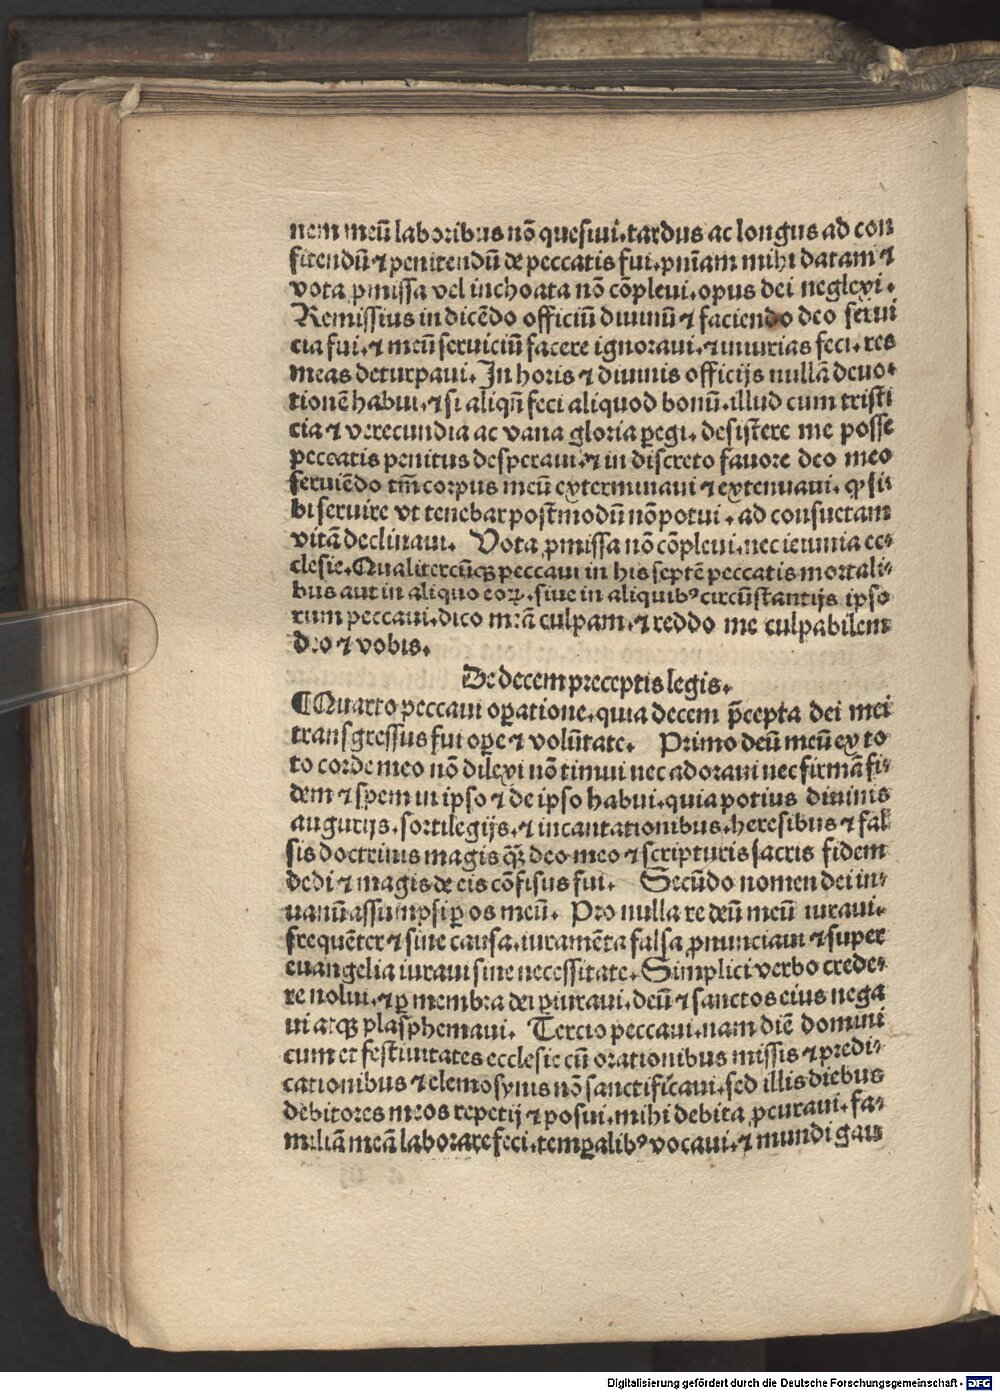 nem meū laboribus nō quesiui. tardus ac longus ad con
fitendū ⁊ penitendū de peccatis fui. pniam mihi datam ⁊
vota ꝓmissa vel inchoata nō cōpleui. opus dei neglexi.
Remissius in dicēdo officiū diuinū ⁊ faciendo deo serui
cia fui. ⁊ meū seruiciū facere ignoraui. ⁊ iniurias feci. res
meas deturpaui. In horis ⁊ diuinis officijs nullā deuo⸗
tionē habui. ⁊ si aliqñ feci aliquod bonū. illud cum tristi
cia ⁊ verecundia ac vana gloria ꝑegi. desistere me posse
peccatis penitus desperaui. ⁊ in discreto fauore deo meo
seruiēdo tm̄ corpus meū exterminaui ⁊ extenuaui. ꝙ si
bi seruire vt tenebar postmodū nō potui. ad consuetam
vitā declinaui. Vota ꝓmissa nō cōpleui. nec ieiunia ec⸗
clesie. Qualitercūqꝫ peccaui in his septē peccatis mortali⸗
bus aut in aliquo eoꝝ. siue in aliquibꝰ circūstantijs ipso
rum peccaui. dico meā culpam. ⁊ reddo me culpabilem
deo ⁊ vobis.
De decem preceptis legis.
¶Quarto peccaui oꝑatione. quia decem p̄cepta dei mei
transgressus fui oꝑe ⁊ volūtate. Primo deū meū ex to
to corde meo nō dilexi nō timui nec adoraui nec firmā fi⸗
dem ⁊ spem in ipso ⁊ de ipso habui. quia potius diuinis
augurijs. sortilegijs. ⁊ incantationibus. heresibus ⁊ fal
sis doctrinis magis qꝫ̄ deo meo ⁊ scripturis sacris fidem
dedi ⁊ magis de eis cōfisus fui. Secūdo nomen dei in⸗
uanū assumpsi ꝑ os meū. Pro nulla re deū meū iuraui.
frequēter ⁊ sine causa. iuramēta falsa ꝓnunciaui ⁊ super
euangelia iuraui sine necessitate. Simplici verbo crede⸗
re nolui. ⁊ ꝑ membra dei ꝑiuraui. deū ⁊ sanctos eius nega
ui atqꝫ plasphemaui. Tercio peccaui. nam diē domini
cum et festiuitates ecclesie cū orationibus missis ⁊ predi⸗
cationibus ⁊ elemosynis nō sanctificaui. sed illis diebus
debitores meos repetij ⁊ posui. mihi debita ꝓcuraui. fa⸗
miliā meā laborare feci. tempalibꝰ vocaui. ⁊ mundi gau
Digitalisierung gefördert durch die Deutsche Forschungsgemeinschaft - DFG